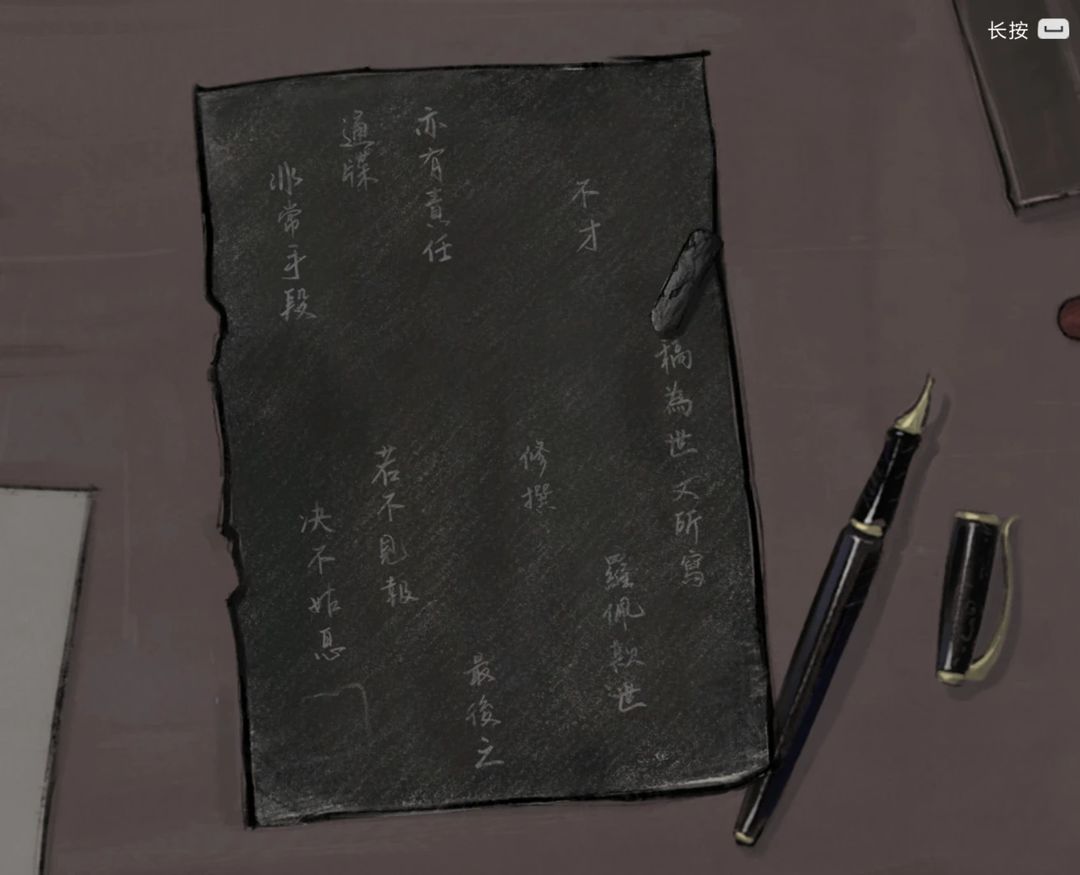 长按
稿為世文所寫
羅佩歎世
不才
修撰
最後之
亦有責任
若不見報
通牒
决不姑息
非常手段